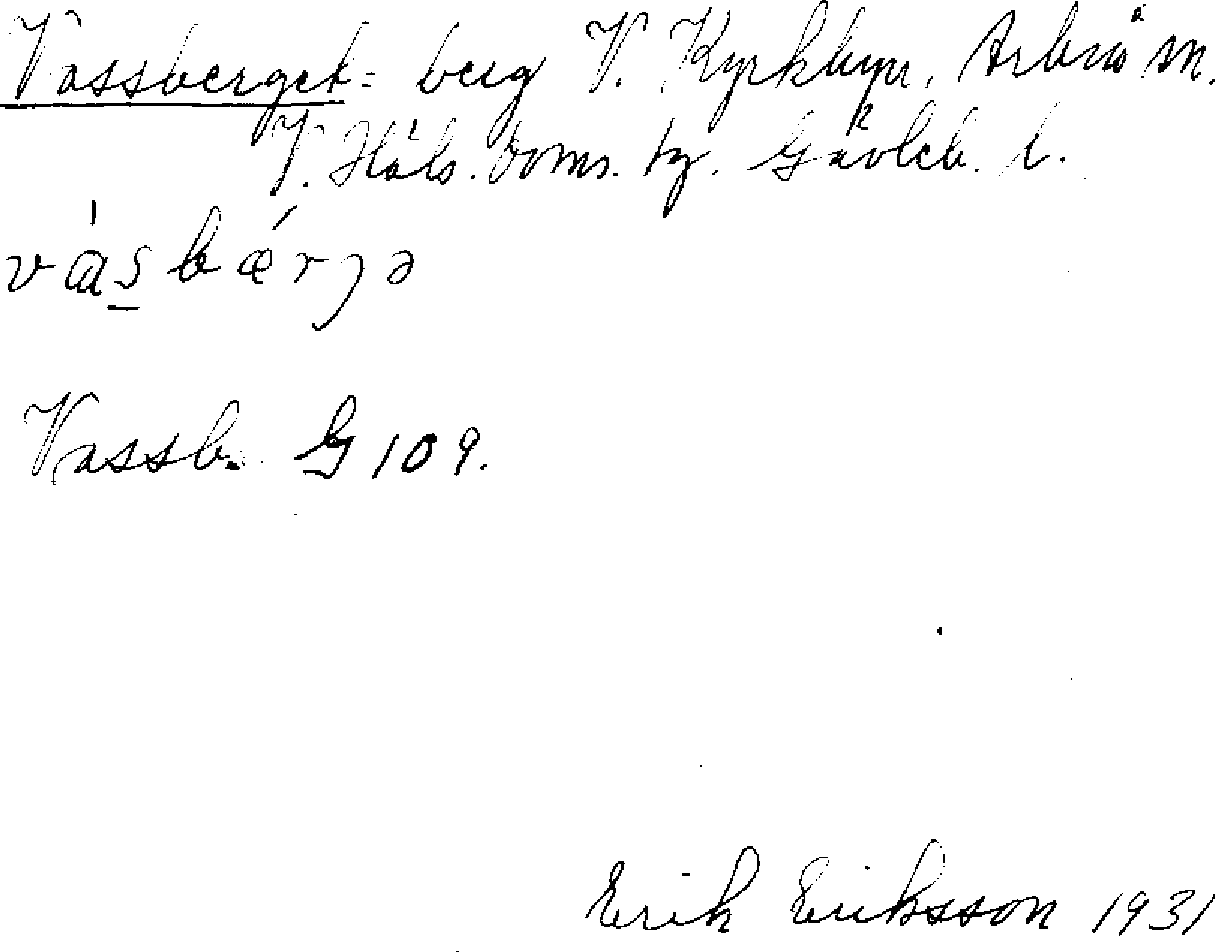 Vassberget = berg V. Kyrkbyn, Arbrå sn.
V. Häls. doms. tg. Gävleb. l.
vàs̲bǽrjə
Vassb. G 109.
Erik Eriksson 1931